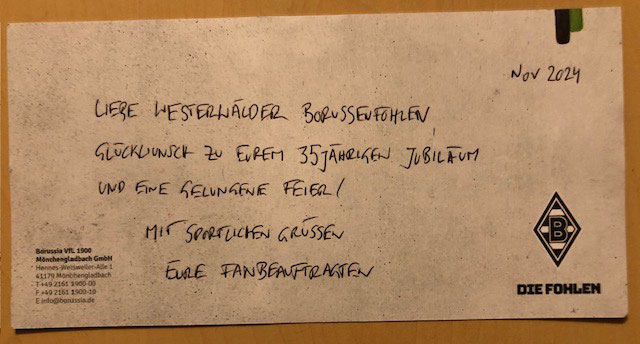 Nov 2024
LIEBE WESTERWÄLDER BORUSSENFOHLEN,
GLÜCKWUNSCH ZU EUREM 35JÄHRIGEN JUBILÄUM
UND EINE GELUNGENE FEIER!
MIT SPORTLICHEN GRÜSSEN
EURE FANBEAUFTRAGTEN
Borussia VfL 1900
Mönchengladbach GmbH
Hennes-Weisweiler-Allee 1
41179 Mönchengladbach
T +49 2161 1900-00
F +49 2161 1900-10
E info@borussia.de
B
DIE FOHLEN